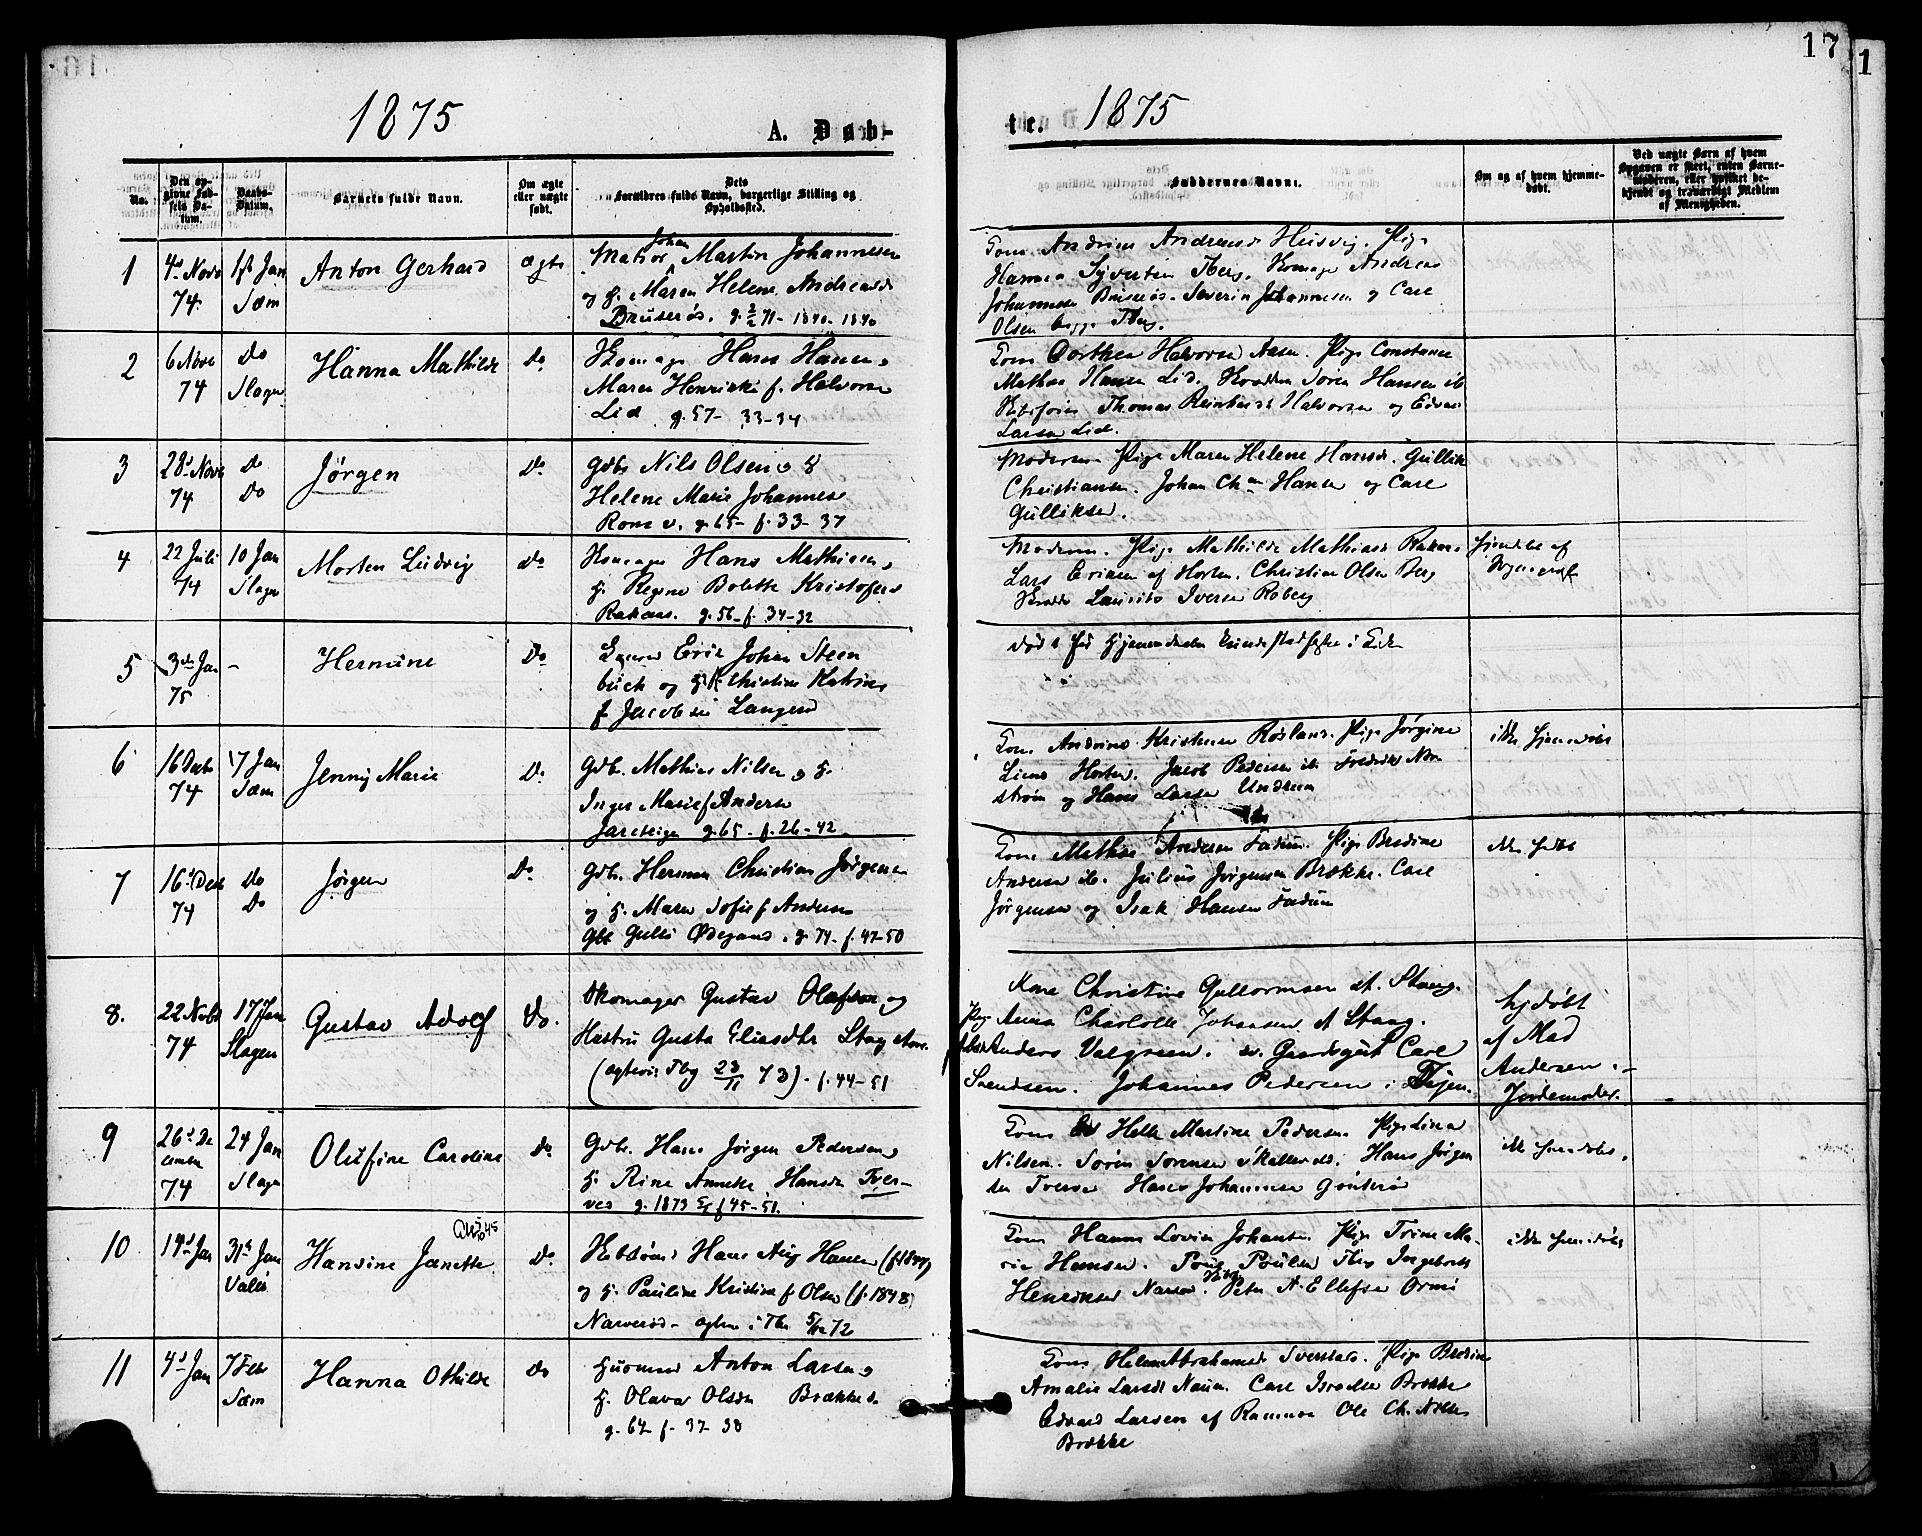 17
1
1875
A. Døb-
te.
1875
No.
Den opgivne Fødsels Datum.
Daabs-Datum.
Barnets fulde Navn.
Om ægte eller uægte født.
Dets Forældres fulde Navn, borgerlige Stilling og Opholdssted.
Faddernes Navne.
Om og af hvem hjemmedøbt.
Ved uægte Barn af hvem Opgaven er skeet, enten Barnemoderen, eller hvilket bekjendt og troværdigt Medlem af Menigheden.
1
4de Novb 74
1ste Jan Sæm
Anton Gerhard
ægte
Matros Johan Martin Johannesen
og H. Maren Helene Andreasdr
Bruserøs. g. 2/2 71 - 1840 - 1840
Kone Andrine Andreasd Husvig. Pige
Hanna Syvertsen Tberg. Skomager Andreas
Johannesen Bruserøs. Severin Johannesen og Carl
Olsen begge Tberg.
2
6 Novb 74
Do Slagen
Hanna Mathilde
Do
Skomager Hans Hansen og
Maren Henrikke f. Halvorsen
Lid g. 57 - 33-34
Kone Dorthea Halvorsen Aasen. Pige Constance
Mathea Hansen Lid. Skrædder Søren Hansen ib
Thomas Reinhardt Halvorsen og Edvard
Larsen Lid.
3
28de Novb 74
Do Do
Jørgen
Do
Gdbr Nils Olsen og H
Helene Marie Johannesen
g. 65 - f. 33-37
Moderen. Pige Maren Helene Hansd. Gullik
Christiansen. Johan Chr Hansen og Carl
Gulliksen.
4
22 Juli 74
10 Jan Slagen
Morten Ludvig
Do
Skomager Hans Mathisen og
H. Regine Bolette Kristofersd
Rakaas. g. 56 - f. 34-32
Moderen. Pige Mathilde Mathiasd Rakaas
Lars Eriksen af Horten. Christian Olsen Berg
Laurits Iversen Roberg
Hjemdøbt af
5
3de Jan 75
-
Hermine
Do
Erik Johan Steen
buck og H. Christine Katrine
f Jacobsen
Død før Hjemmedaaben kunde stadfæstes i Kirken
6
16 Decb 74
17 Jan Sæm
Jenny Marie
Do
Gdb. Mathias Nilsen og H.
Inger Marie f Andersen
Jareteigen g. 65 - f. 26-42
Kone Andrine Kristensen Rosland. Pige Jørgine
Horten. Jacob Pedersen ib Fredrik Nor
strøm og Hans Larsen Undrum
ikke hjemdøbt
7
16de Decb 74
Do Do
Jørgen
Do
Gdb. Herman Christian Jørgensen
og H. Maren Sofie f Andersen
Gulli Ødegaard. g. 74 - f. 47-50
Kone Mathea Andersen Fadum. Pige Bredine
Andersen ib. Julius Jørgensen Brække. Carl
Jørgensen og Isak Hansen Fadum
ikke hjdbt
8.
22 Novb 74
17 Jan Slagen
Gustav Adolf
Do.
Skomager Gustav Olafson og
Hustru Gusta Eliasdtr Stang
(ægtevi: Tbg 23/11 73) - f. 44-51
Kone Christine Guttormsen ib. Stang.
Pige Anna Charlotte Johansen ib Stang.
Anders Valgreen. Carl
Svendsen. Johannes Pedersen
hjdøbt
af Mad
Andersen
Jordemoder.
9
26de De cember 74
24 Jan Slagen
Olufine Caroline
Do
Gdb. Hans Jørgen Pedersen og
H. Rine Annette Hansd Tver-
ved g. 1873 f 45-51.
Kone Helle Martine Pedersen. Pige Lina
Nilsen. Søren Sørensen Skallerød. Hans Jørgen
sen Tverved Hans Johannesen
ikke hjemdøbt.
10
14de Jan
31te Jan Valøe
Hansine Janette
Do.
Hans Aug Hansen (f. 1849)
og H. Pauline Kristine f. Olsen (f. 1848)
Narverød - ægtev. i Tbg 5/12 72
Kone Hanna Lovise Johansen Pige Trine Ma-
rie Hansen. Poul Poulsen Tbg Ingebret
Henriksen Narverød. Peter A. Ellefsen Ormø
ikke hjemdøbt
11
4de Jan
7 Feb Sæm
Hanna Othilde
Do
Husmand Anton Larsen og
H. Olava Olsen Brække
g. 62 f. 37-38
Kone Helene Abrahamsd Sverstad. Pige Bredine
Amalie Larsd Nauen. Carl Israelsen Brække
Edvard Larsen af Ramnæs Ole Ch. Nilsen
Brække